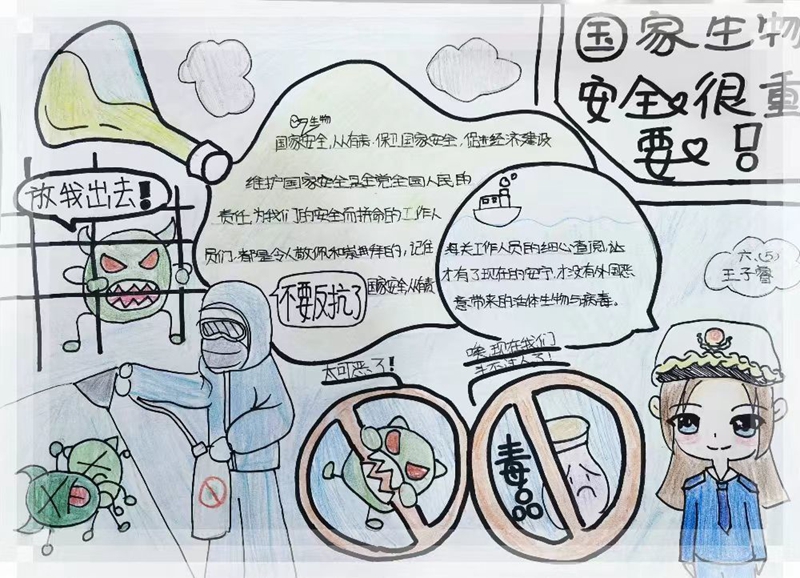 国家生物
安全很重
要！
放我出去！
生物
国家安全,人人有责.保卫国家安全,促进经济建设
维护国家安全是全党全国人民的
责任,为我们的安全而拼命的工作人
员们,都是令人敬佩和崇拜的,记住
国家安全人人有责
不要反抗了
海关工作人员的细心查阅,让
才有了现在的安宁,才没有外国恶
意带来的活体生物与病毒。
六.(5)
王子睿
太可恶了!
唉,现在我们
毒品